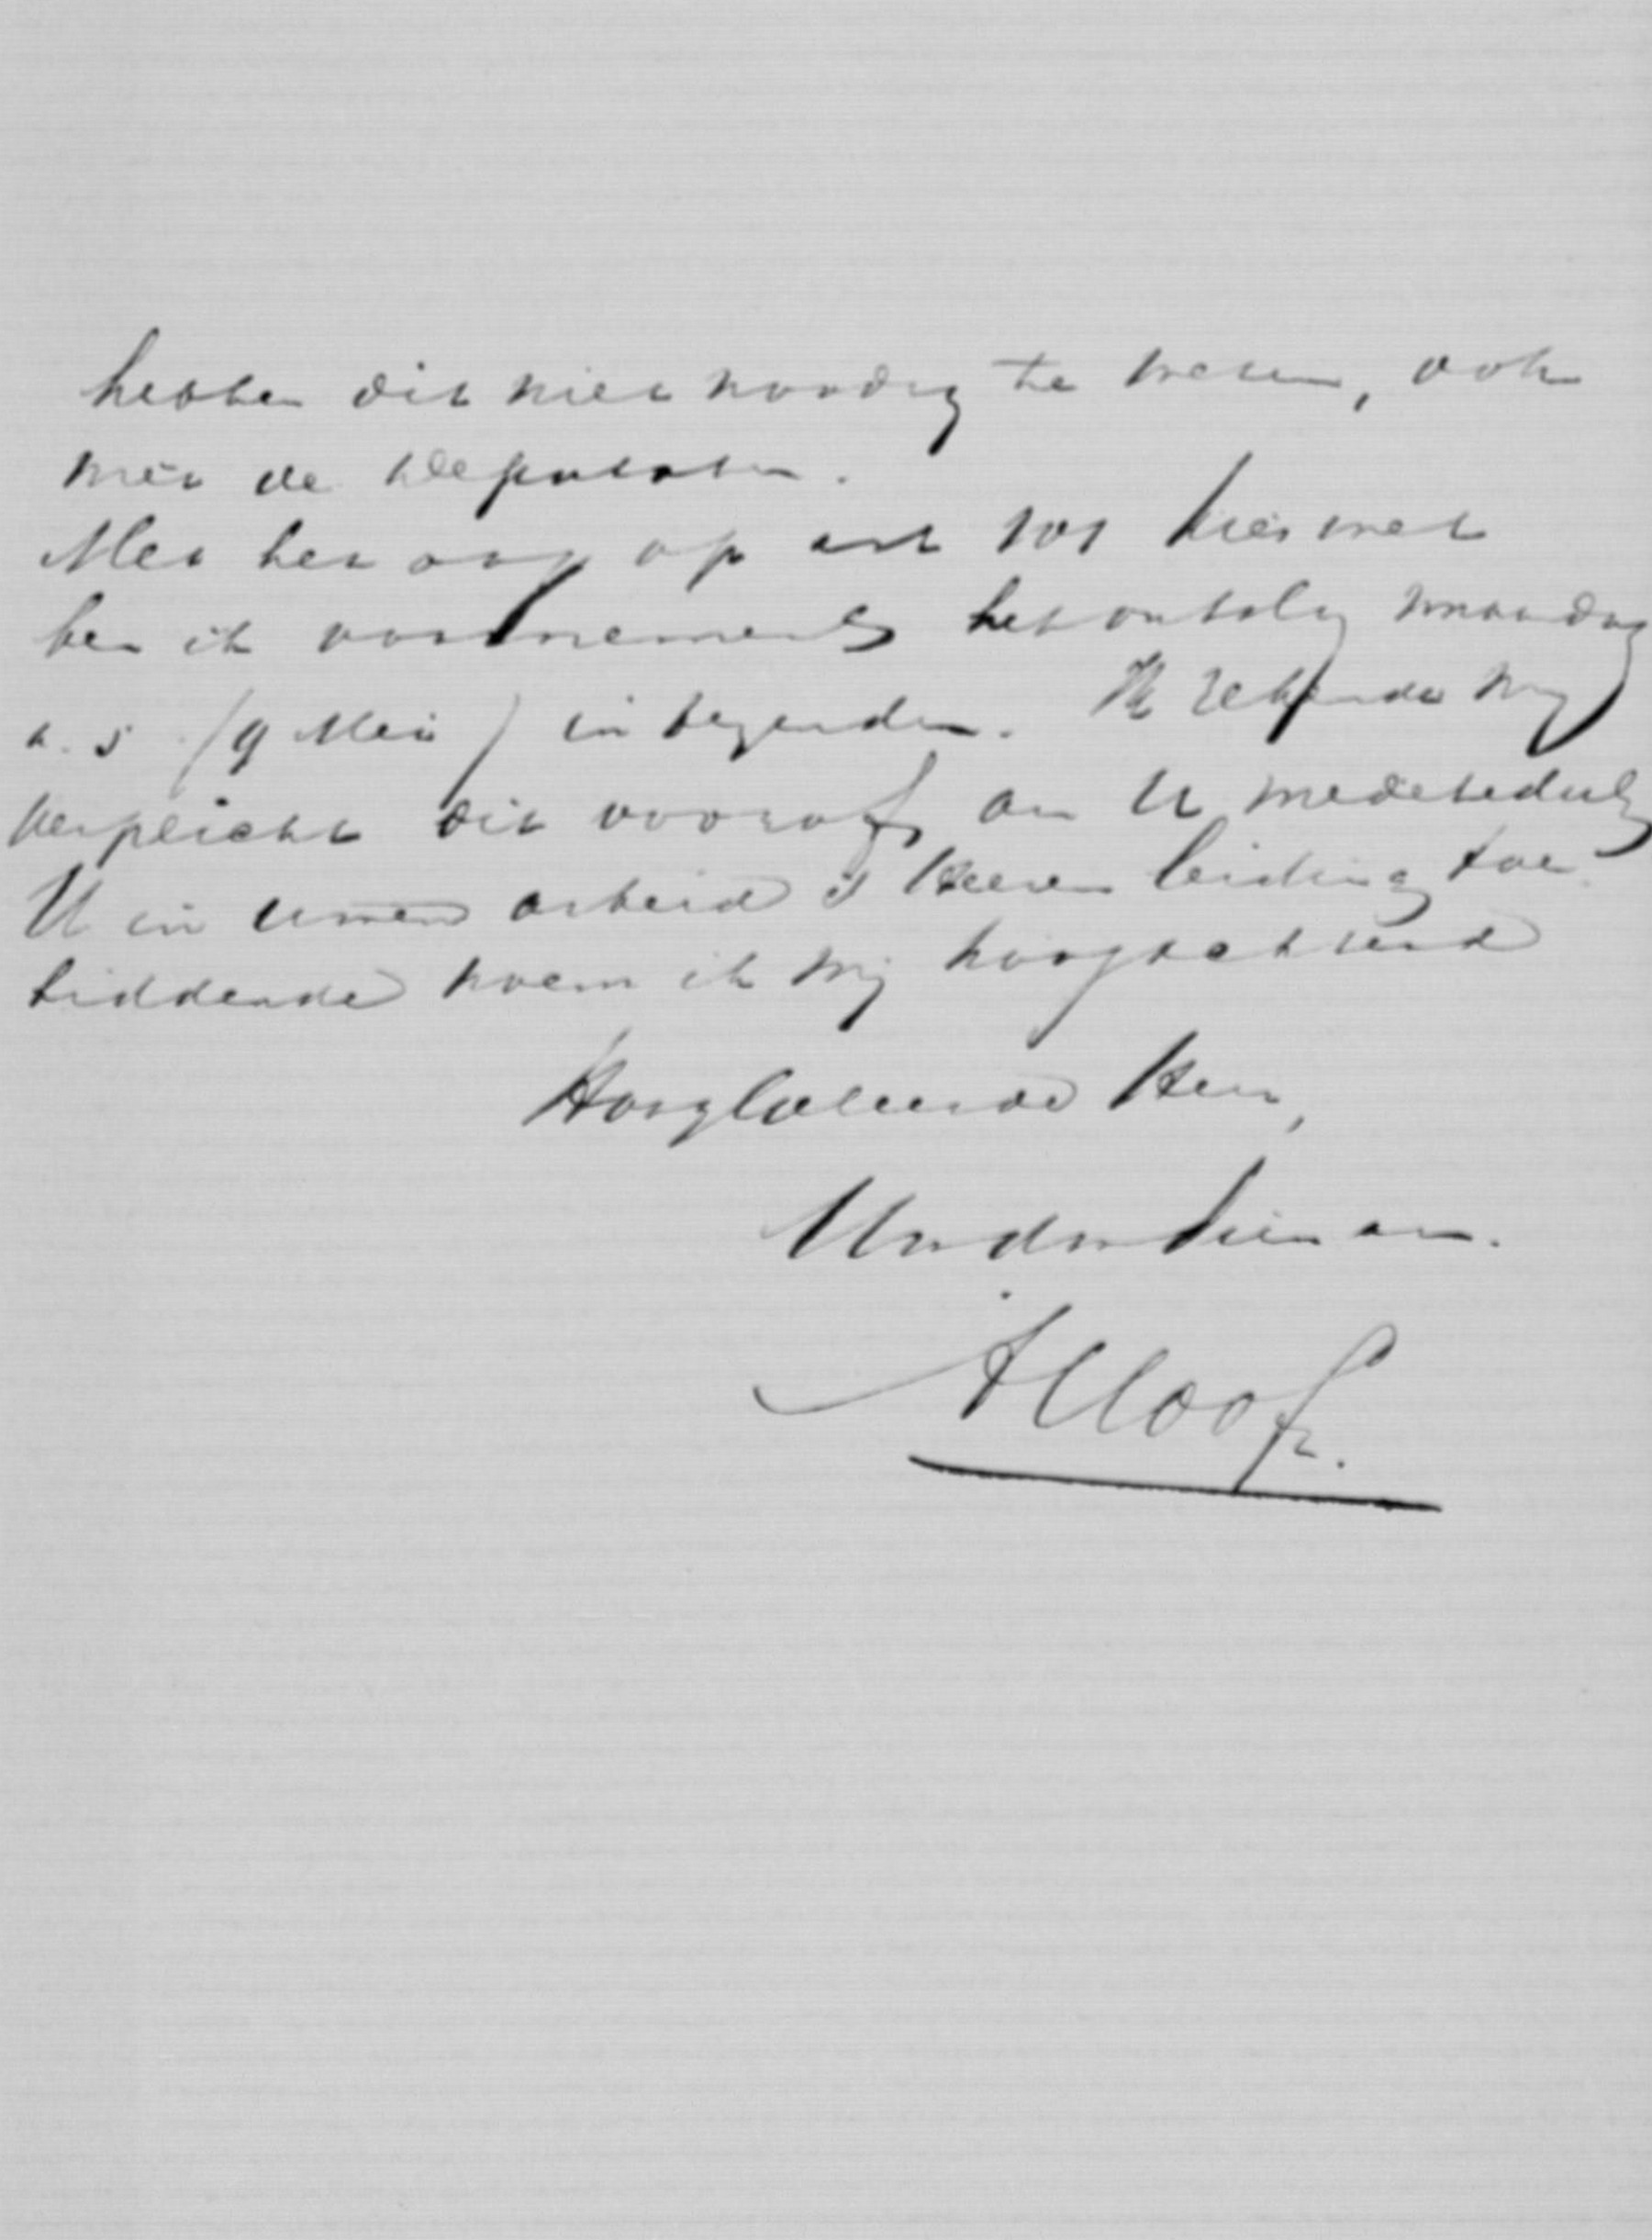 hebben dit niet noodig te weten, ook
niet de Deputaten.
Met het oog op art 101 kieswet
ben ik voornemens het ontslag maandag
a.s. (9 Mei) in te zenden. Ik rekende mij
verplicht dit vooraf aan U mede te deelen
U in uwen arbeid 's Heeren leiding toe
biddende noem ik mij hoogachtend
Hooggeleerde Heer,
Uw dw dienaar.